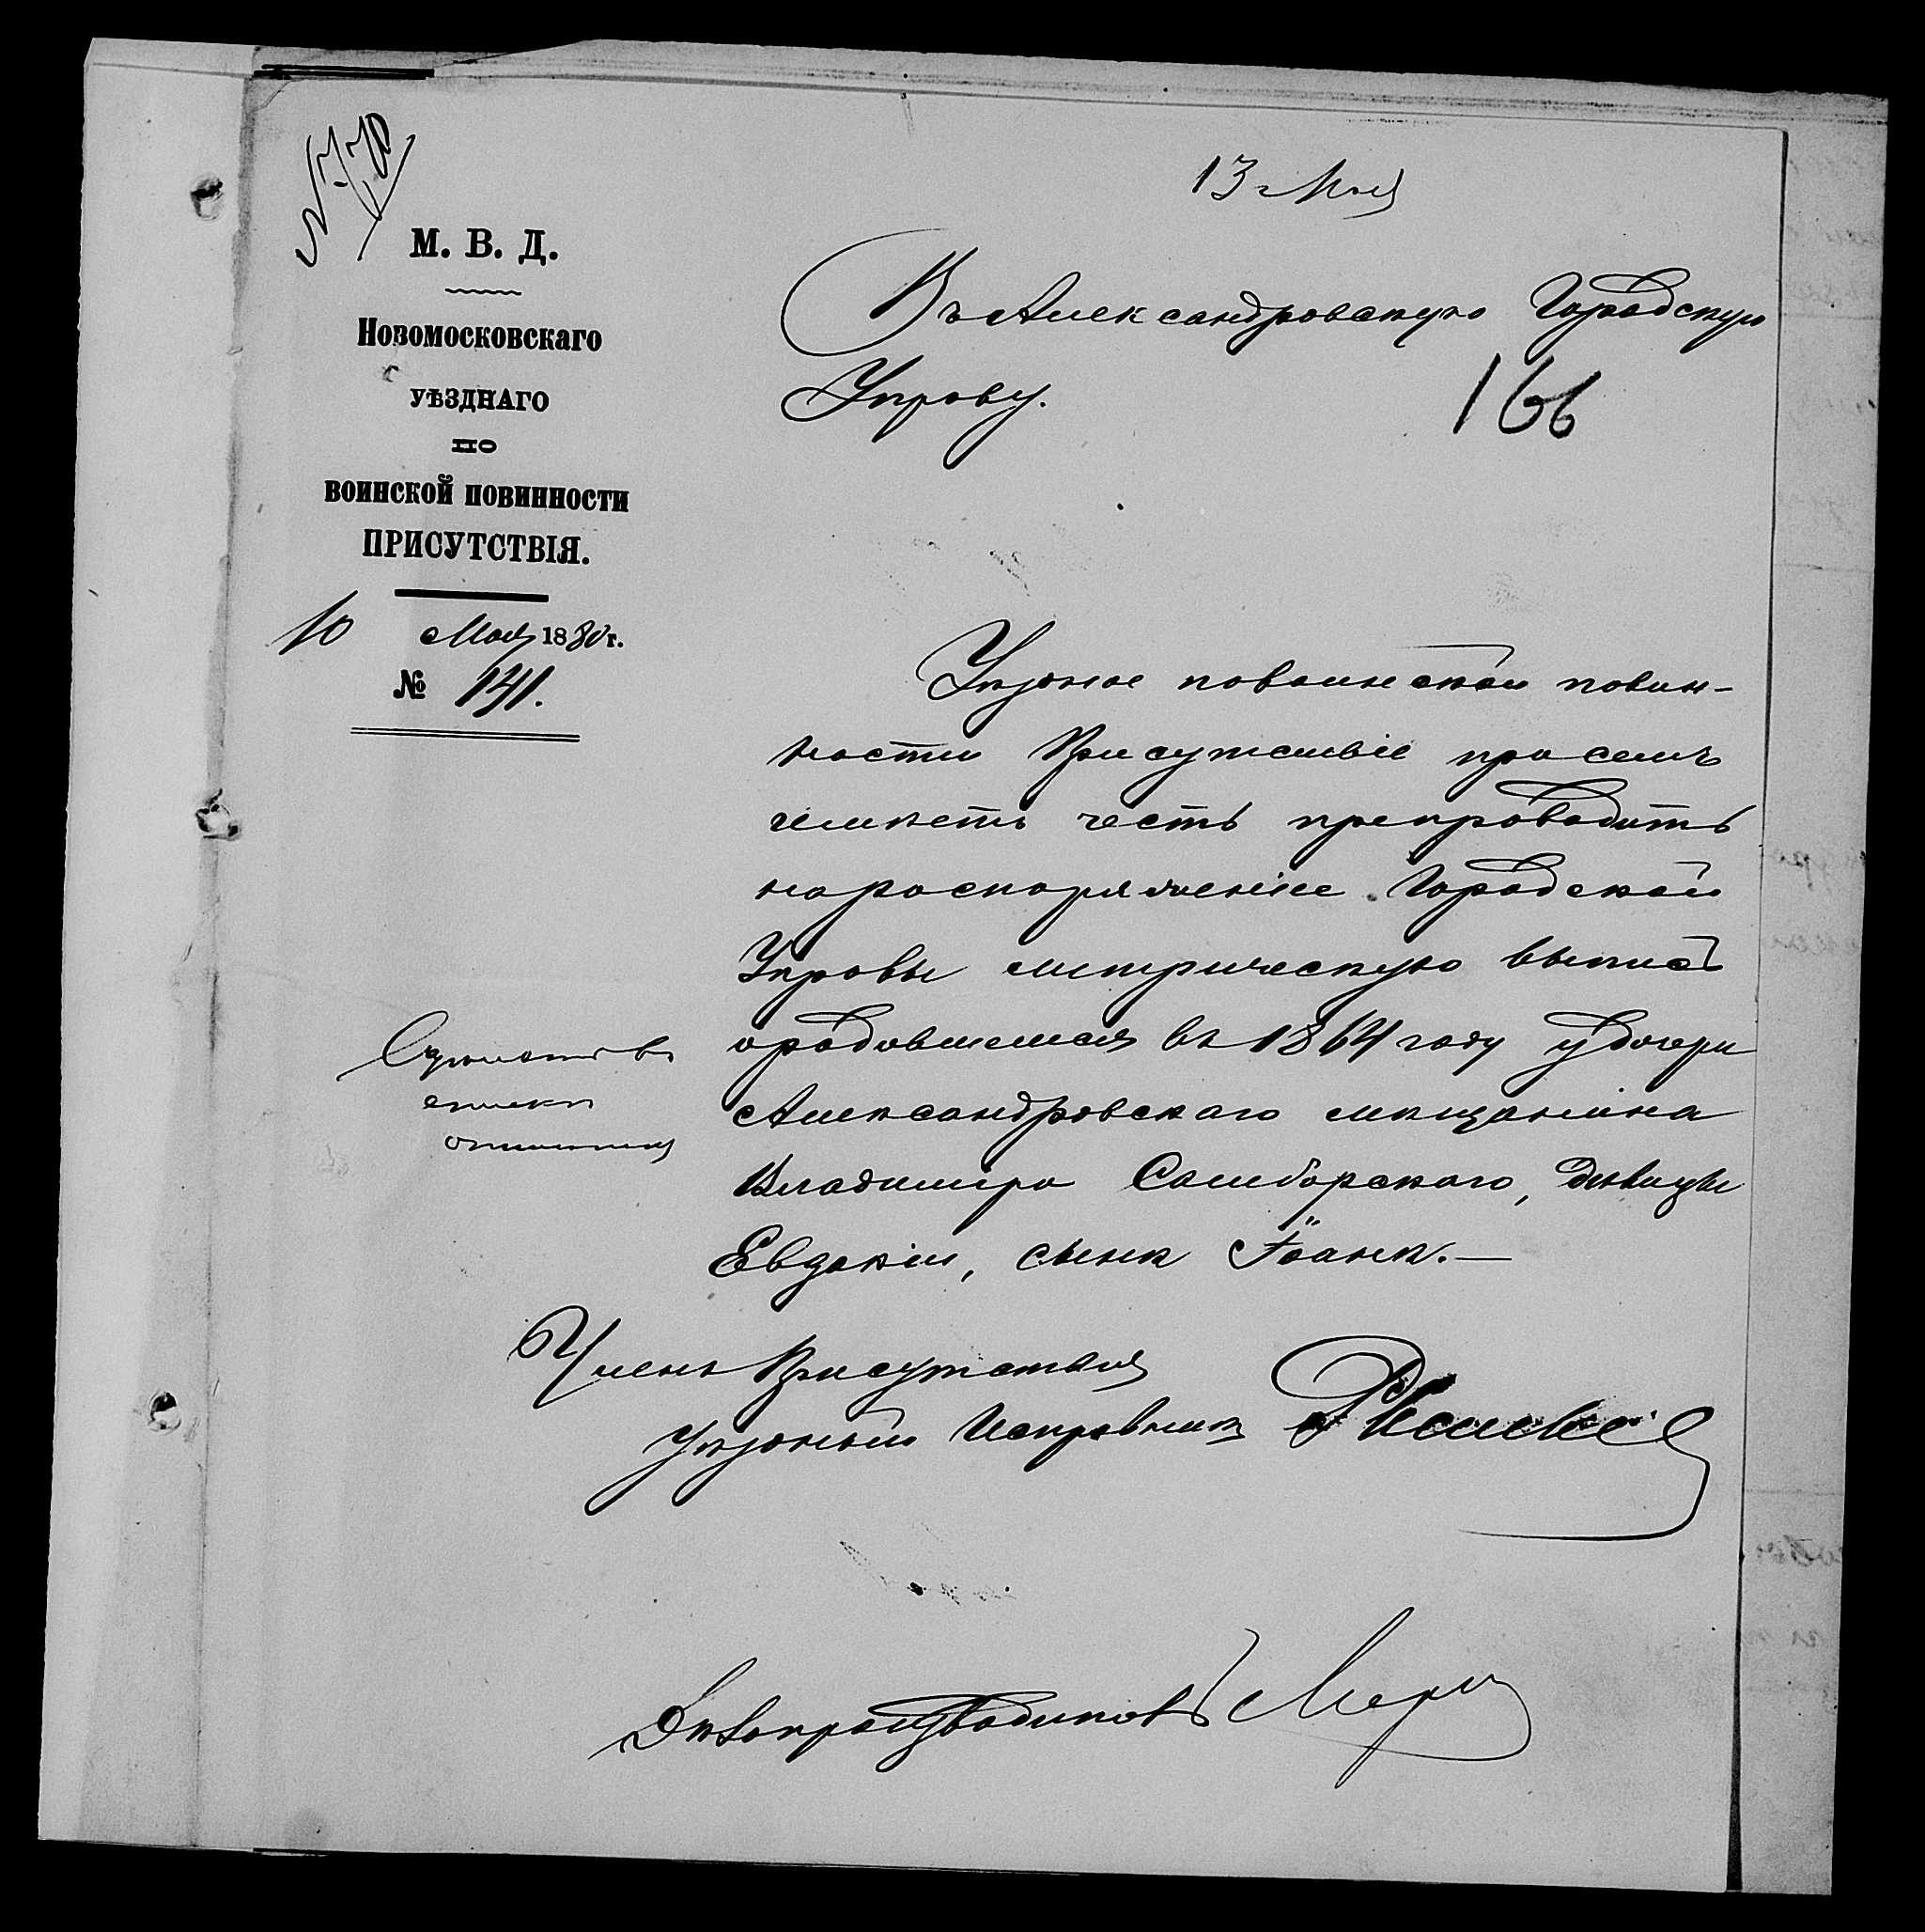 № 770
13 Мая
М. В. Д.
Новомосковскаго
УѢЗДНАГО
ПО
ВОИНСКОЙ ПОВИННОСТИ
ПРИСУТСТВІЯ.
10 Мая 1880 г.
№ 141.
Въ Александровскую Городскую
Управу.
166
Уѣздное по воинской повин-
ности Присутствіе при семъ
имѣетъ честь препроводить
на распоряженіе Городской
Управы метрическую выпись
о родившемся въ 1864 году у дочери
Александровскаго мѣщанина
Владиміра Самборскаго, дѣвицы
Евдокіи, сынѣ Іоаннѣ.—
списки
Членъ Присутствія
Уѣздный Исправникъ
Дѣлопроизводитель